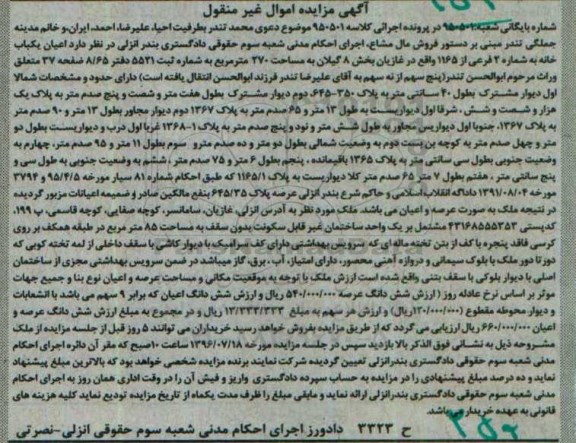 آگهی مزایده اموال غیر منقول
شماره بایگانی شعبه ۹۵۰۵۰۱ در پرونده اجرائی کلاسه ۹۵۰۵۰۱ موضوع دعوی محمد تندر بطرفیت احیا، علیرضا، احمد، ایران، و خانم مدینه
جملگی تندر مبنی بر دستور فروش مال مشاع، اجرای احکام مدنی شعبه سوم حقوقی دادگستری بندر انزلی در نظر دارد اعیان یکباب
خانه به شماره ۲ فرعی از ۱۱۶۵ واقع در غازیان بخش ۸ گیلان به مساحت ۲۷۰ مترمربع به شماره ثبت ۵۵۳۱ دفتر ۸/۶۵ صفحه ۳۷ متعلق
وراث مرحوم ابوالحسن تندر (پنج سهم از نه سهم به آقای علیرضا تندر فرزند ابوالحسن انتقال یافته است) دارای حدود و مشخصات شمالا
اول دیوار مشترک بطول ۴۰ سانتی متر به پلاک ۳۵۰-۶۴۵، دوم دیوار مشترک بطول هفت متر و شصت و پنج صدم متر به پلاک یک
هزار و شصت و شش، شرقا اول دیواریست به طول ۱۳ متر و ۶۵ صدم متر به پلاک ۱۳۶۷ دوم دیوار مجاور بطول ۱۳ متر و ۹۰ صدم متر
به پلاک ۱۳۶۷، جنوبا اول دیواریس مجاور به طول شش متر و نود و پنج صدم متر به پلاک ۱-۱۳۶۸ غربا اول درب و دیواریست بطول دو
متر و چهل صدم متر به کوچه بن بست دوم به وضعیت شمالی بطول دو متر و ده صدم مترو سوم بطول ۱۱ متر و ۹۵ صدم متر، چهارم به
وضعیت جنوبی بطول سی سانتی متر به پلاک ۱۳۶۵ باقیمانده، پنجم بطول ۶ متر و ۷۵ صدم متر، ششم به وضعیت جنوبی به طول سی و
پنج سانتی متر، هفتم بطول ۷ متر ۶۵ صدم متر کلا دیواریست به پلاک ۱۱۶۵/۱ که طبق احکام شماره ۸۱ سیار مورخه ۹۵/۴/۵ و ۳۷۹۴
مورخه ۱۳۹۱/۰۸/۰۴ دادگاه انقلاب اسلامی و حاکم شرع بندر انزلی عرصه پلاک ۶۴۵/۳۵ بنفع مالکین صادر و ضمیمه اعیانات مزبور گردیده
در نتیجه ملک به صورت عرصه و اعیان می باشد. ملک مورد نظر به آدرس انزلی، غازیان، سامانسر، کوچه صفایی، کوچه قاسمی، پ ۱۹۹،
کدپستی ۴۳۱۶۸۵۵۵۳۵۳ مشتمل بر یک واحد ساختمان غیر قابل سکونت بدون سقف به مساحت ۸۵ متر مربع در طبقه همکف بر روی
کرسی فاقد پنجره با کف از بتن تخته ماله ای که سرویس بهداشتی دارای کف سرامیک با دیوار کاشی با سقف داخلی از لمه تخته کوبی که
دورتا دور ملک با بلوک سیمانی و دروازه آهنی محصور، دارای امتیاز، آب، برق، گاز میباشد در ضمن سرویس بهداشتی مجزی از ساختمان
اصلی با دیوار بلوکی با سقف بتنی واقع شده است ارزش ملک با توجه به موقعیت مکانی و مساحت عرصه و اعیان نوع بنا و جمیع جهات
موثر بر اساس نرخ عادله روز (ارزش شش دانگ عرصه ۵۴۰/۰۰۰/۰۰۰ ریال و ارزش شش دانگ اعیان که برابر ۹ سهم می باشد با انشعابات
و دیوار محوطه مقطوع (۱۲۰/۰۰۰/۰۰۰ریال) و ارزش هر سهم به مبلغ ۱۳/۳۳۳/۳۳۳ ریال و در مجموع به مبلغ ارزش شش دانگ عرصه و
اعیان ۶۶۰/۰۰۰/۰۰۰ ریال ارزیابی می گردد که از طریق مزایده بفروش خواهد رسید خریداران می توانند ۵ روز قبل از جلسه مزایده از ملک
مشروحه ذیل به نشانی فوق الذکر بالا بازدید سپس در جلسه مزایده مورخه ۱۳۹۶/۰۷/۱۸ ساعت ۱۰صبح که مقر آن دائره اجرای احکام
مدنی شعبه سوم حقوقی دادگستری بندرانزلی تعیین گردیده شرکت نمایند برنده مزایده شخصی خواهد بود که بالاترین مبلغ پیشنهاد
نماید و ده درصد مبلغ پیشنهادی را در مزایده به حساب سپرده دادگستری واریز و فیش آن را در وقت اداری همان روز به اجرای احکام
مدنی شعبه سوم حقوقی دادگستری بندرانزلی ارائه نماید و مابقی مبلغ را ظرف مدت یکماه از تاریخ مزایده تودیع نماید کلیه هزینه های
قانونی به عهده خریدار می باشد.
ح ۳۳۲۳ دادورز اجرای احکام مدنی شعبه سوم حقوقی انزلی-نصرتی